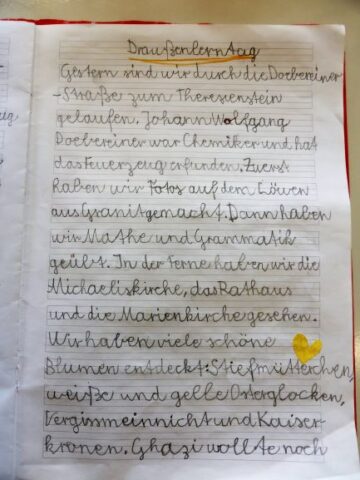 Draußenlerntag
Gestern sind wir durch die Doebereiner
-Straße zum Theresienstein
gelaufen. Johann Wolfgang
Doebereiner war Chemiker und hat
das Feuerzeug erfunden. Zuerst
haben wir Fotos auf dem Löwen
aus Granit gemacht. Dann haben
wir Mathe und Grammatik
geübt. In der Ferne haben wir die
Michaeliskirche, das Rathaus
und die Marienkirche gesehen.
Wir haben viele schöne
Blumen entdeckt: Stiefmütterchen,
weiße und gelle Osterglocken,
Vergissmeinnicht und Kaiser-
kronen. Ghazi wollte noch